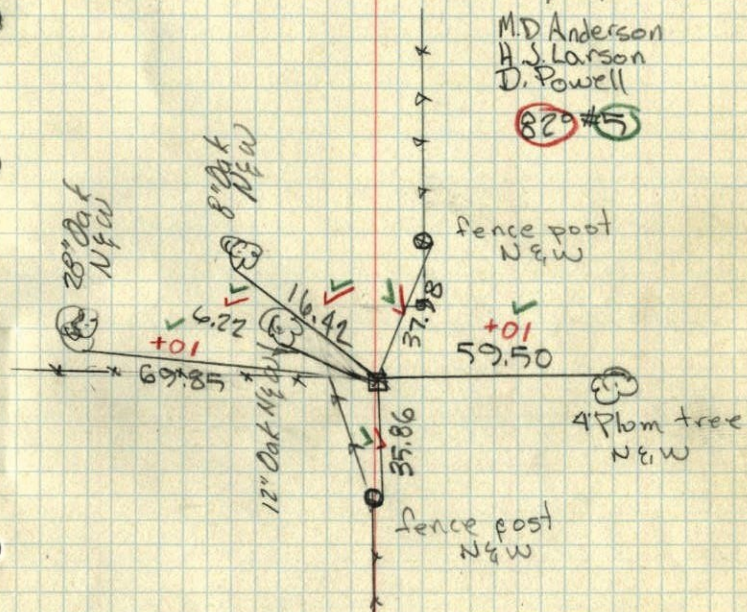 M.D Anderson
H.J. Larson
D. Powell
82° #5
8" Oak
N&W
28" Oak
N&W
fence poot
N&W
16.42
6.22
37.98
+01
59.50
+01
69.85
12" Oak N&W
4" Plom tree
N&W
35.86
fence post
N&W